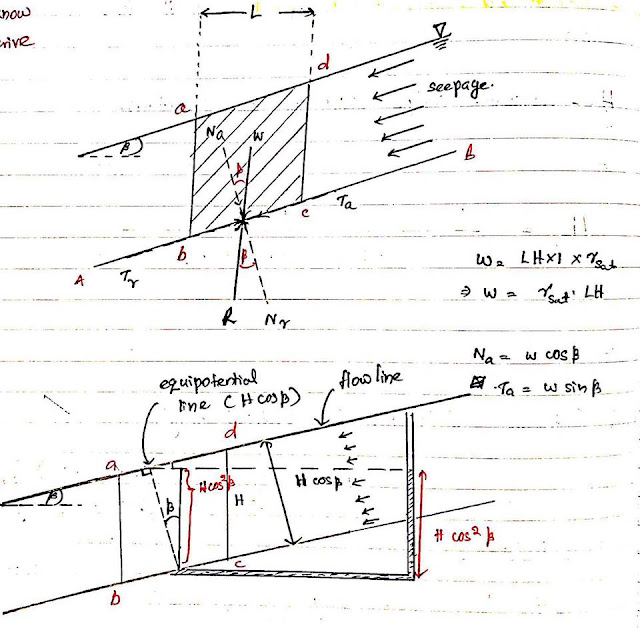 now
rive
L
d
seepage.
a
β
Na
W
β
B
Ta
c
b
A
Tr
β
R
Nr
W = LH×1×γsat
⇒ W = γsat. LH
Na = W cosβ
Ta = W sinβ
equipotential
line (Hcosβ)
flowline
d
a
β
Hcos²β
H
H cosβ
β
H cos²β
c
b